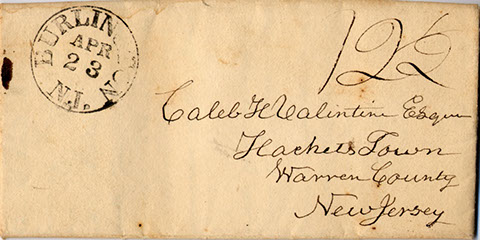 BURLINGTON
APR
23
N.J.
12½
Caleb H Valintine Esqu
Hackets Town
Warren County
New Jersey